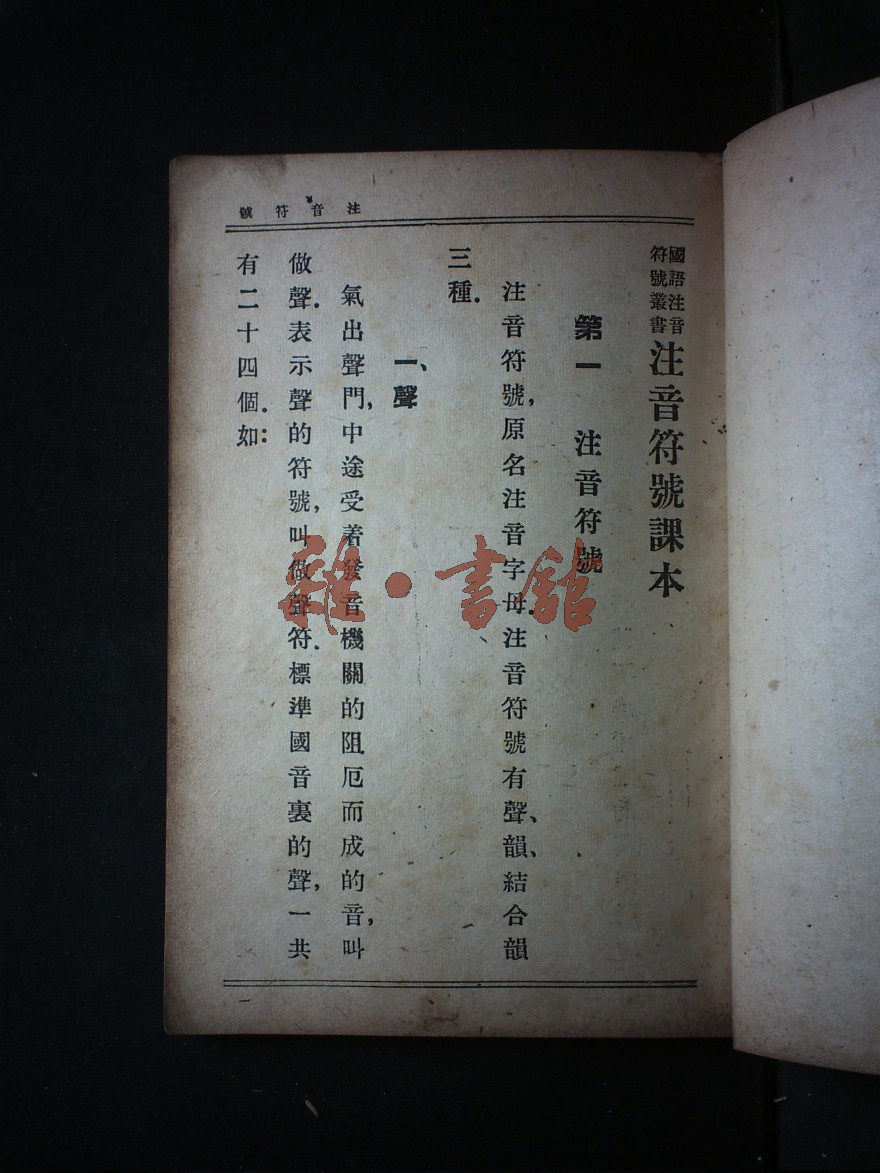 注音符號
國語注音
符號叢書
注音符號課本
第一 注音符號
注音符號,原名注音字母.注音符號有聲、韻、結合韻
三種.
一、聲
氣出聲門,中途受着發音機關的阻厄而成的音,叫
做聲.表示聲的符號,叫做聲符.標準國音裏的聲,一共
有二十四個.如:
一
雜·書館